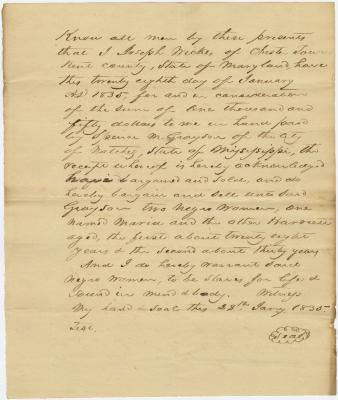 Know all men by these presents
that I Joseph Wickes of Chester Town
Kent county, State of Maryland, have
this twenty eighth day of January
AD 1835 for and in consideration
of the sum of One thousand and
fifty dollars to me in hand paid
by Spence M Grayson of the City
of Natchez State of Mississippi, the
receipt whereof is hereby acknowledged
have bargained and sold, and do
hereby bargain and sell unto said
Grayson two Negro Women, one
named Maria and the other Harriet
aged, the first about twenty eight
years & the second about thirty years
And I do hereby warrant said
Negro Women, to be slaves for life &
Sound in mind & body. Witness
My hand & seal this 28th Jany 1835.
Test.
Seal